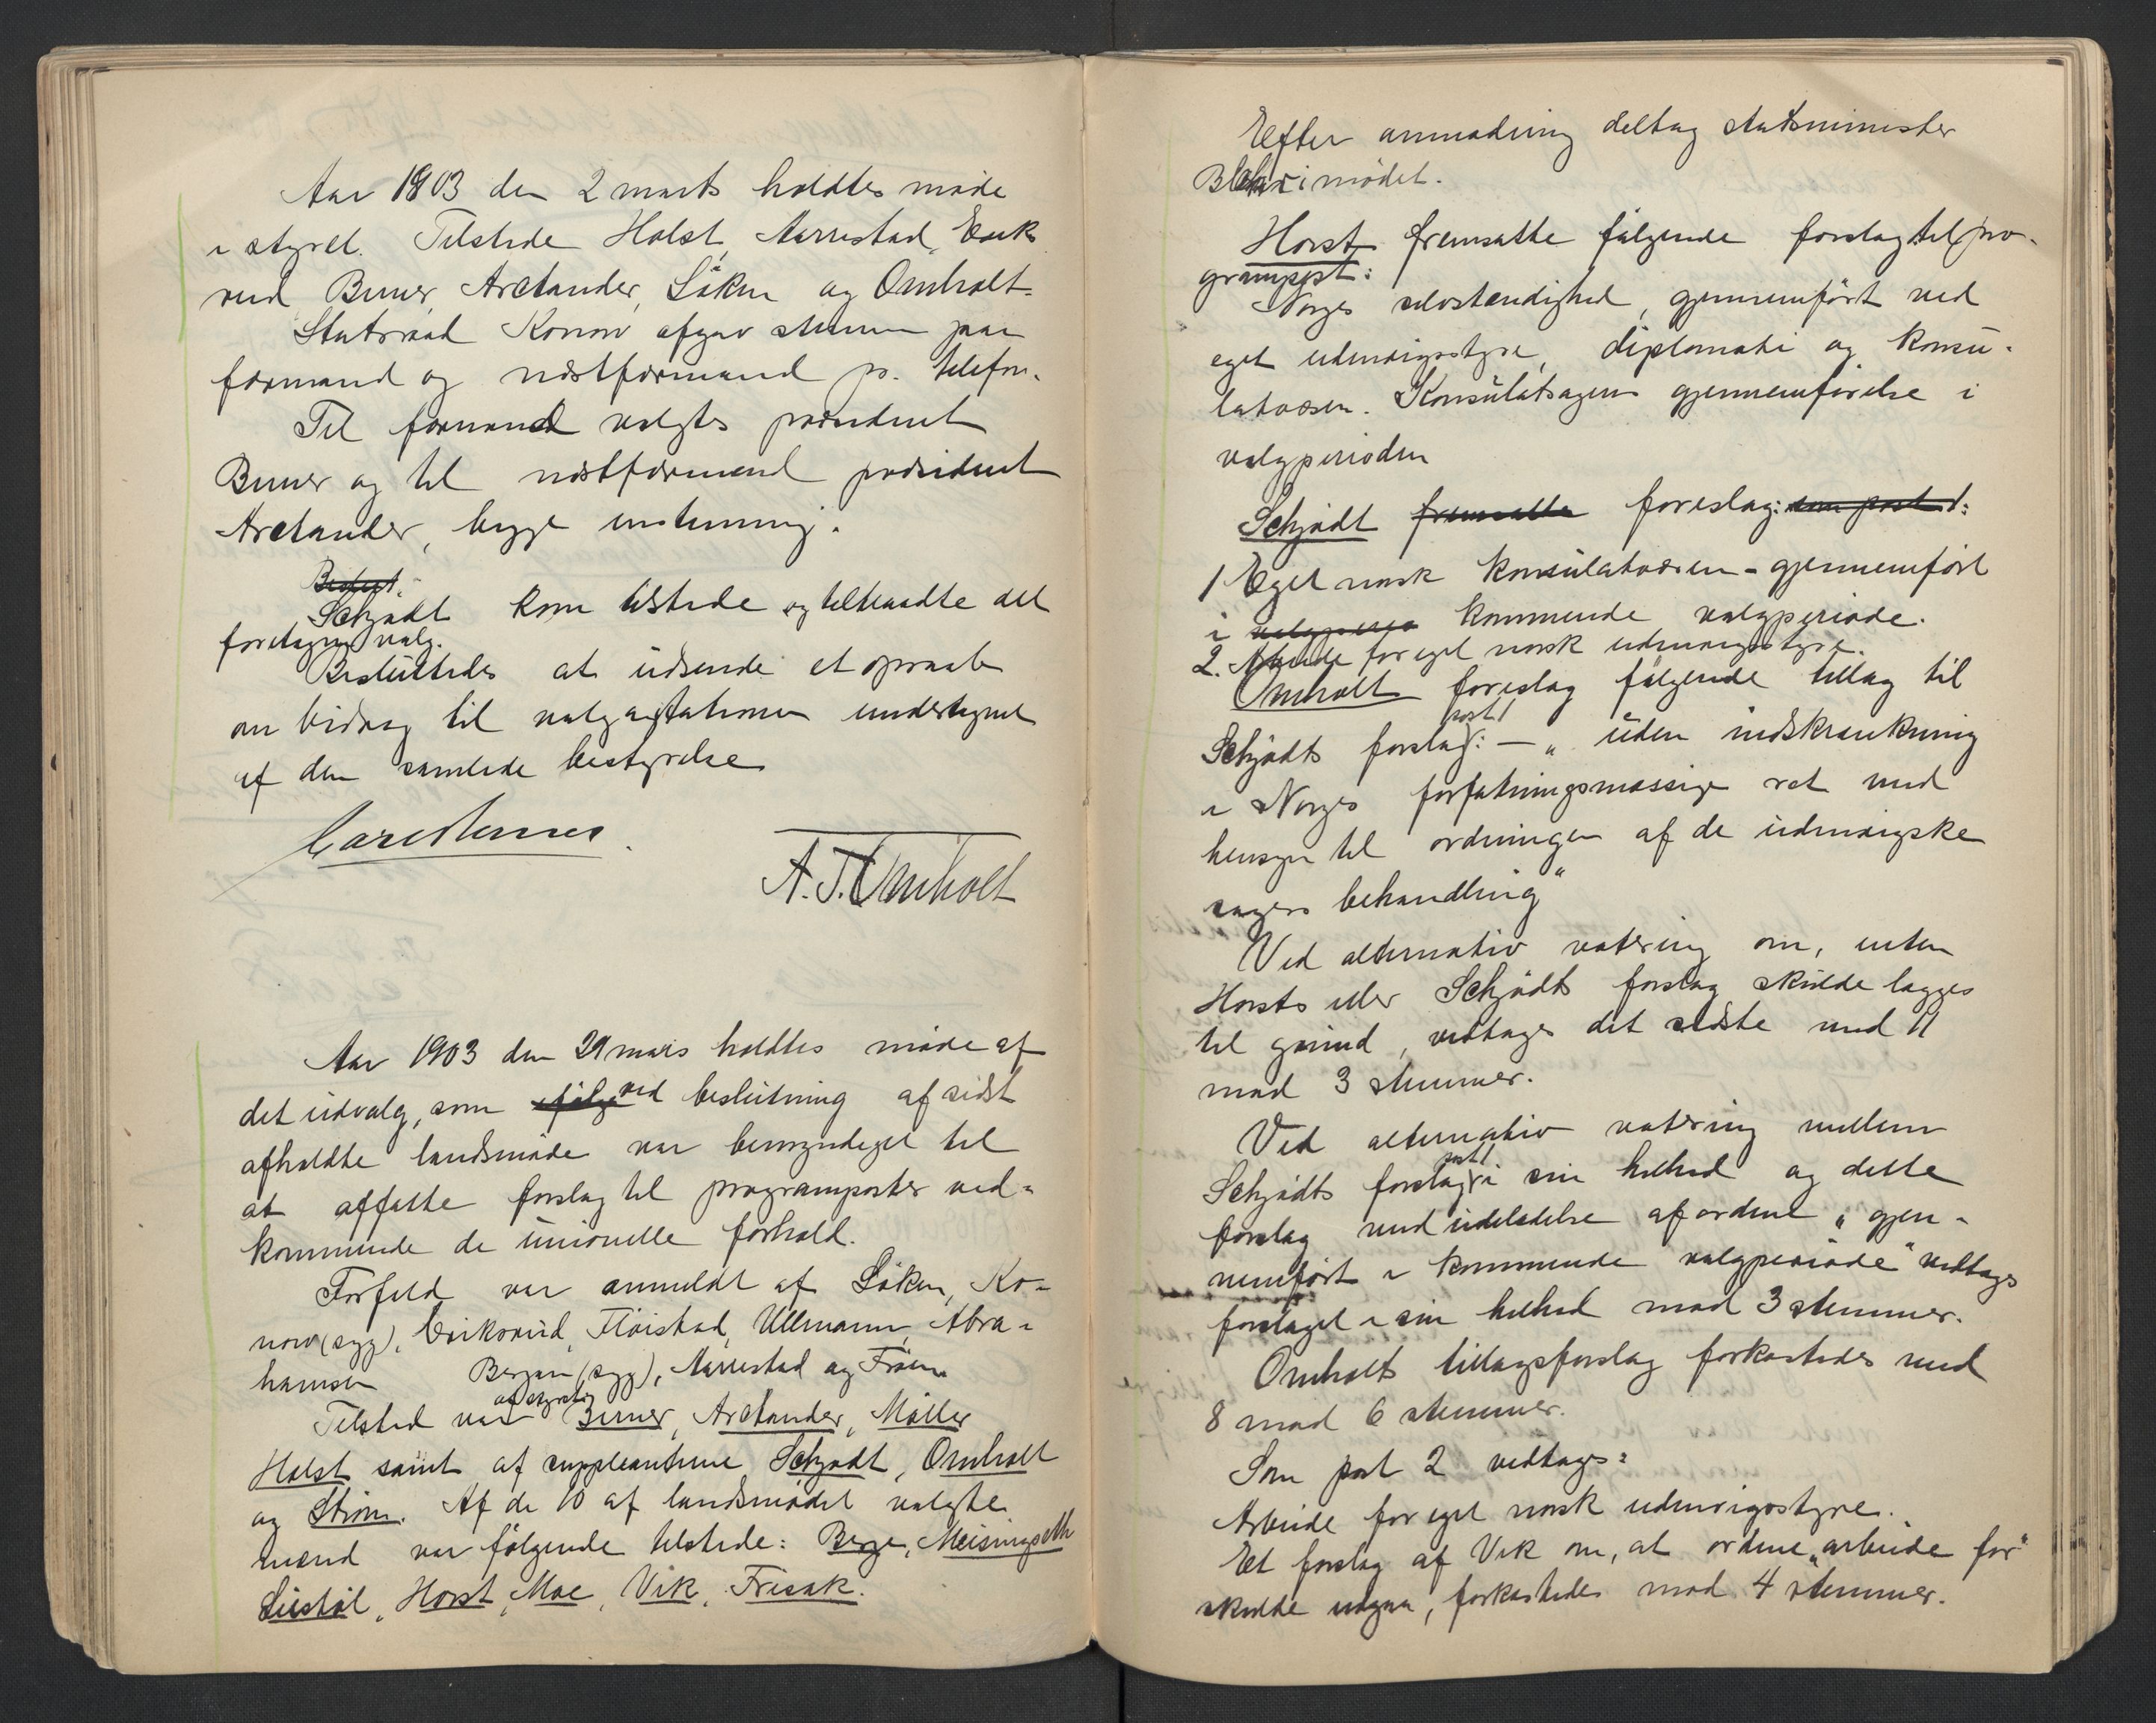 Aar 1903 den 2 marts holdtes møde
i styret. Tilstede Holst, Aarrestad, Eriks
rud Berner, Arctander, Løken og Omholt.
Statsraad Konow afgav stemme paa
formand og næstformand pr. telefon.
Til formand valgtes præsident
Berner og til næstformand præsident
Arctander, begge enstemmig.
Schjødt kom tilstede og tiltraadte det
foretagne valg.
Besluttedes at udsende et opraab
om bidrag til valgagitationen undertegnet
af den samlede bestyrelse
Carl Berner.
A. T. Omholt
Aar 1903 den 29 mars holdtes møde af
det udvalg, som ifølge ved beslutning af sidst
afholdte landsmøde var bemyndiget til
at affatte forslag til programposter ved-
kommende de unionelle forhold.
Forfald var anmeldt af Løken, Ko-
now (syg), Eriksrud, Fløistad, Ullmann, Abra-
hamsen Bergan (syg), Aarrestad og Frøen
af styret
Tilsted var Berner, Arctander, Møller
Holst samt af suppleanterne Schjødt, Omholt
og Strøm. Af de 10 af landsmødet valgte
mænd var følgende tilstede: Berge, Meisingseth
Liestøl, Horst, Moe, Vik, Frisak.
Efter anmodning deltog statsminister
Blehr i mødet.
Horst fremsatte følgende forslag til pro-
grampost:
Norges selvstændighed, gjennemført ved
eget udenrigsstyre, diplomati og konsu-
latvæsen. Konsulatsagens gjennemførelse i
valgperioden
Schjødt fremsatte foreslog: som post 1:
1 Eget norsk konsulatvæsen - gjennemført
i valgperio kommende valgperiode.
2. Arbeide for eget norsk udenrigsstyre.
Omholt foreslog følgende tillæg til
post 1
Schjødts forslag: — „uden indskrænkning
i Norges forfatningsmæssige ret med
hensyn til ordningen af de udenrigske
sagers behandling"
Ved alternativ votering om, enten
Horsts eller Schjødts forslag skulde lægges
til grund, vedtoges det sidste med 11
mod 3 stemmer.
Ved alternativ votering mellem
post 1
Schjødts forslag i sin helhed og dette
forslag med udeladelse af ordene „gjen-
nemført i kommende valgperiode" vedtoges
forslaget i sin helhed mod 3 stemmer.
Omholts tillægsforslag forkastedes med
8 mod 6 stemmer.
Som post 2 vedtoges:
Arbeide for eget norsk udenrigsstyre.
Et forslag af Vik om, at ordene „arbeide for"
skulde udgaa, forkastedes mod 4 stemmer.